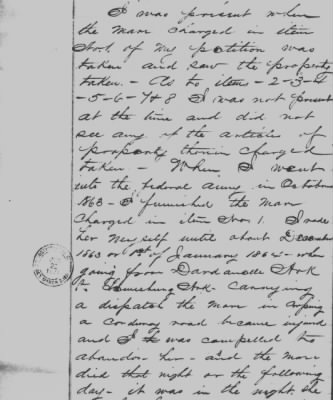 I was present when
the mare charged in item
No 1. of my petition was
taken and saw the property
taken. - As to items - 2 - 3 - 4
- 5 - 6 - 7 & 8 I was not present
at the time and did not
see any of the articles of
property therein charged
taken - When I went
into the federal army in October
1863 - I furnished the mare
charged in item No. 1. I rode
her myself until about December
1863 or 1st of January 1864 - when
going from Dardanelle Ark
to Ark - Carrying
a dispatch the mare in
a corduroy road became injured
and I was compelled to
abandon her - and the mare
died that night or the following
day - it was in the night, she